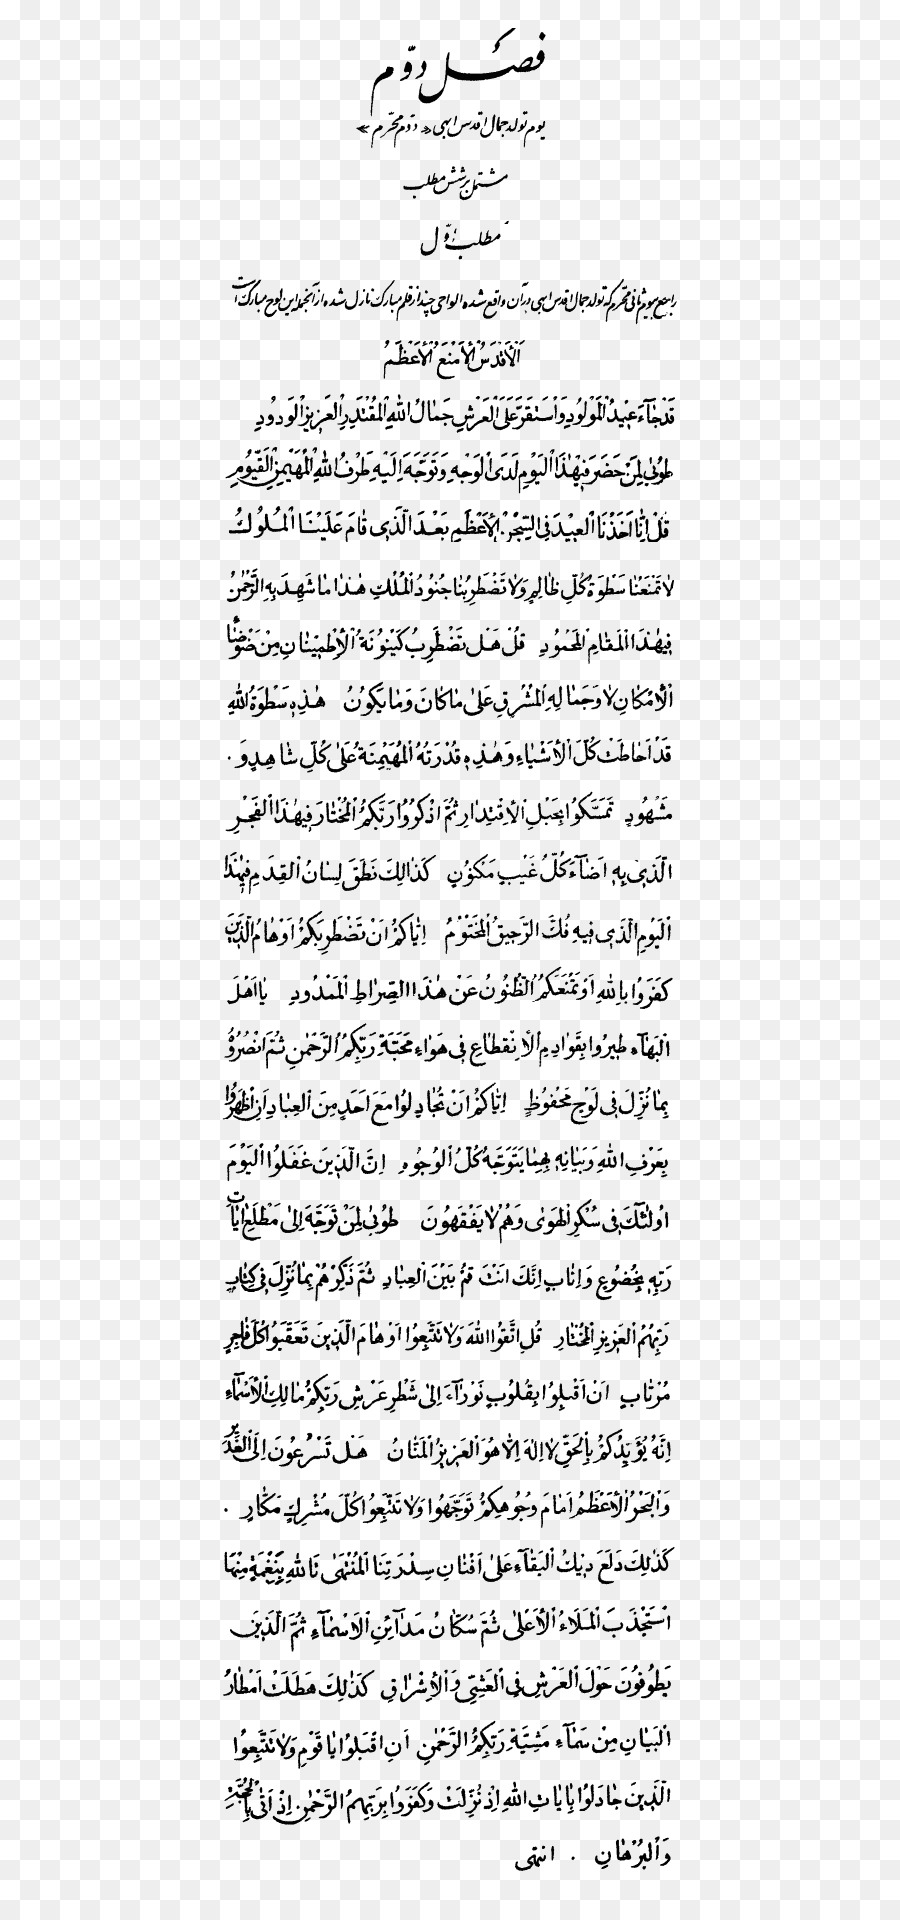 فصل دوّم
یوم تولد جمال اقدس ابهی « دوّم محرّم »
مشتمل بر شش مطلب
مطلب اوّل
راجع بیوم ثانی محرّم که تولد جمال اقدس ابهی در آن واقع شده الواحی چند از قلم مبارک نازل شده از آنجمله این لوح مبارک است
اَلْأَقْدَسُ الْأَمْنَعُ الْأَعْظَمُ
قَدْ جَاءَ عِيْدُ الْمَوْلُودِ وَاسْتَقَرَّ عَلَى الْعَرْشِ جَمَالُ اللهِ الْمُقْتَدِرِ الْعَزِيزِ الْوَدُودِ
طُوبَى لِمَنْ حَضَرَ فِيهٰذَا الْيَوْمِ لَدَى الْوَجْهِ وَتَوَجَّهَ اِلَيْهِ طَرْفُ اللهِ الْمُهَيْمِنِ الْقَيُّومِ
قُلْ اِنَّا اَخَذْنَا الْعِيْدَ فِى السِّجْنِ الْأَعْظَمِ بَعْدَ الَّذِى قَامَ عَلَيْنَا الْمُلُوكُ
لَا تَمْنَعُنَا سَطْوَةُ كُلِّ ظَالِمٍ وَلَا تَضْطَرِبُنَا جُنُودُ الْمُلْكِ هٰذَا مَا شَهِدَ بِهِ الرَّحْمٰنُ
فِيهٰذَا الْمَقَامِ الْمَحْمُودِ قُلْ هَلْ تَضْطَرِبُ كَيْنُونَةُ الْأِطْمِيْنَانِ مِنْ ضَوْضَاءِ
الْأِمْكَانِ لَا وَجَمَالِهِ الْمُشْرِقِ عَلَى مَا كَانَ وَمَا يَكُونُ هٰذِهِ سَطْوَةُ اللهِ
قَدْ اَحَاطَتْ كُلَّ الْأَشْيَاءِ وَهٰذِهِ قُدْرَتُهُ الْمُهَيْمِنَةُ عَلَى كُلِّ شَاهِدٍ وَ.
مَشْهُودٍ تَمَسَّكُوا بِحَبْلِ الْأِقْتِدَارِ ثُمَّ اذْكُرُوا رَبَّكُمُ الْمُخْتَارَ فِيهٰذَا الْفَجْرِ
الَّذِى بِهِ اَضَآءَ كُلُّ غَيْبٍ مَكْنُونٍ كَذٰلِكَ نَطَقَ لِسَانُ الْقِدَمِ فِيهٰذَا
الْيَوْمِ الَّذِى فِيهِ فُكَّ الرَّحِيقُ الْمَخْتُومُ اِيَّاكُمْ اَنْ تَضْطَرِبَكُمْ اَوْهَامُ الَّذِينَ
كَفَرُوا بِاللهِ اَوْ تَمْنَعَكُمُ الظُّنُونُ عَنْ هٰذَا الصِّرَاطِ الْمَمْدُودِ يَا اَهْلَ
الْبَهَآءِ طِيرُوا بِقَوَادِمِ الْأِنْقِطَاعِ فِى هَوَاءِ مَحَبَّةِ رَبِّكُمُ الرَّحْمٰنِ ثُمَّ انْصُرُوهُ
بِمَا نُزِّلَ فِى لَوْحٍ مَحْفُوظٍ اِيَّاكُمْ اَنْ تُجَادِلُوا مَعَ اَحَدٍ مِنَ الْعِبَادِ اَنِ اظْهَرُوا
بِعَرْفِ اللهِ وَبَيَانِهِ بِهِمَا يَتَوَجَّهُ كُلُّ الْوُجُوهِ اِنَّ الَّذِينَ غَفَلُوا الْيَوْمَ
اُولٰئِكَ فِى سُكْرِ الْهَوَى وَهُمْ لَا يَفْقَهُونَ طُوبَى لِمَنْ تَوَجَّهَ اِلَى مَطْلَعِ آيَاتِ
رَبِّهِ بِخُضُوعٍ وَاِنَابٍ اِنَّكَ اَنْتَ قُمْ بَيْنَ الْعِبَادِ ثُمَّ ذَكِّرْهُمْ بِمَا نُزِّلَ فِى كِتَابِ
رَبِّهِمُ الْعَزِيزِ الْمُخْتَارِ قُلِ اتَّقُوا اللهَ وَلَا تَتَّبِعُوا اَوْهَامَ الَّذِينَ تَعَقَّبُوا كُلَّ فَاجِرٍ
مُرْتَابٍ اَنْ اَقْبِلُوا بِقُلُوبٍ نَوْرَآءَ اِلَى شَطْرِ عَرْشِ رَبِّكُمْ مَالِكِ الْأَسْمَآءِ
اِنَّهُ يُؤَيِّدُكُمْ بِالْحَقِّ لَا اِلٰهَ اِلَّا هُوَ الْعَزِيزُ الْمَنَّانُ هَلْ تَسْرُعُونَ اِلَى الْغَدِيرِ
وَالْبَحْرُ الْأَعْظَمُ اَمَامَ وُجُوهِكُمْ تَوَجَّهُوا وَلَا تَتَّبِعُوا كُلَّ مُشْرِكٍ مَكَّارٍ .
كَذٰلِكَ دَلَعَ دِيْكُ الْبَقَآءِ عَلَى اَفْنَانِ سِدْرَتِنَا الْمُنْتَهَى تَاللهِ بِنَغْمَةٍ مِنْهَا
اسْتَجْذَبَ الْمَلَاءُ الْأَعْلَى ثُمَّ سُكَّانُ مَدَآئِنِ الْأَسْمَآءِ ثُمَّ الَّذِينَ
يَطُوفُونَ حَوْلَ الْعَرْشِ فِى الْعَشِيِّ وَالْأِشْرَاقِ كَذٰلِكَ هَطَلَتْ اَمْطَارُ
الْبَيَانِ مِنْ سَمَآءِ مَشِيَّةِ رَبِّكُمُ الرَّحْمٰنِ اَنِ اقْبَلُوا يَا قَوْمِ وَلَا تَتَّبِعُوا
الَّذِينَ جَادَلُوا بِآيَاتِ اللهِ اِذْ نُزِّلَتْ وَكَفَرُوا بِرَبِّهِمُ الرَّحْمٰنِ اِذْ اَتَى بِالْحُجَّةِ
وَالْبُرْهَانِ . انتهی